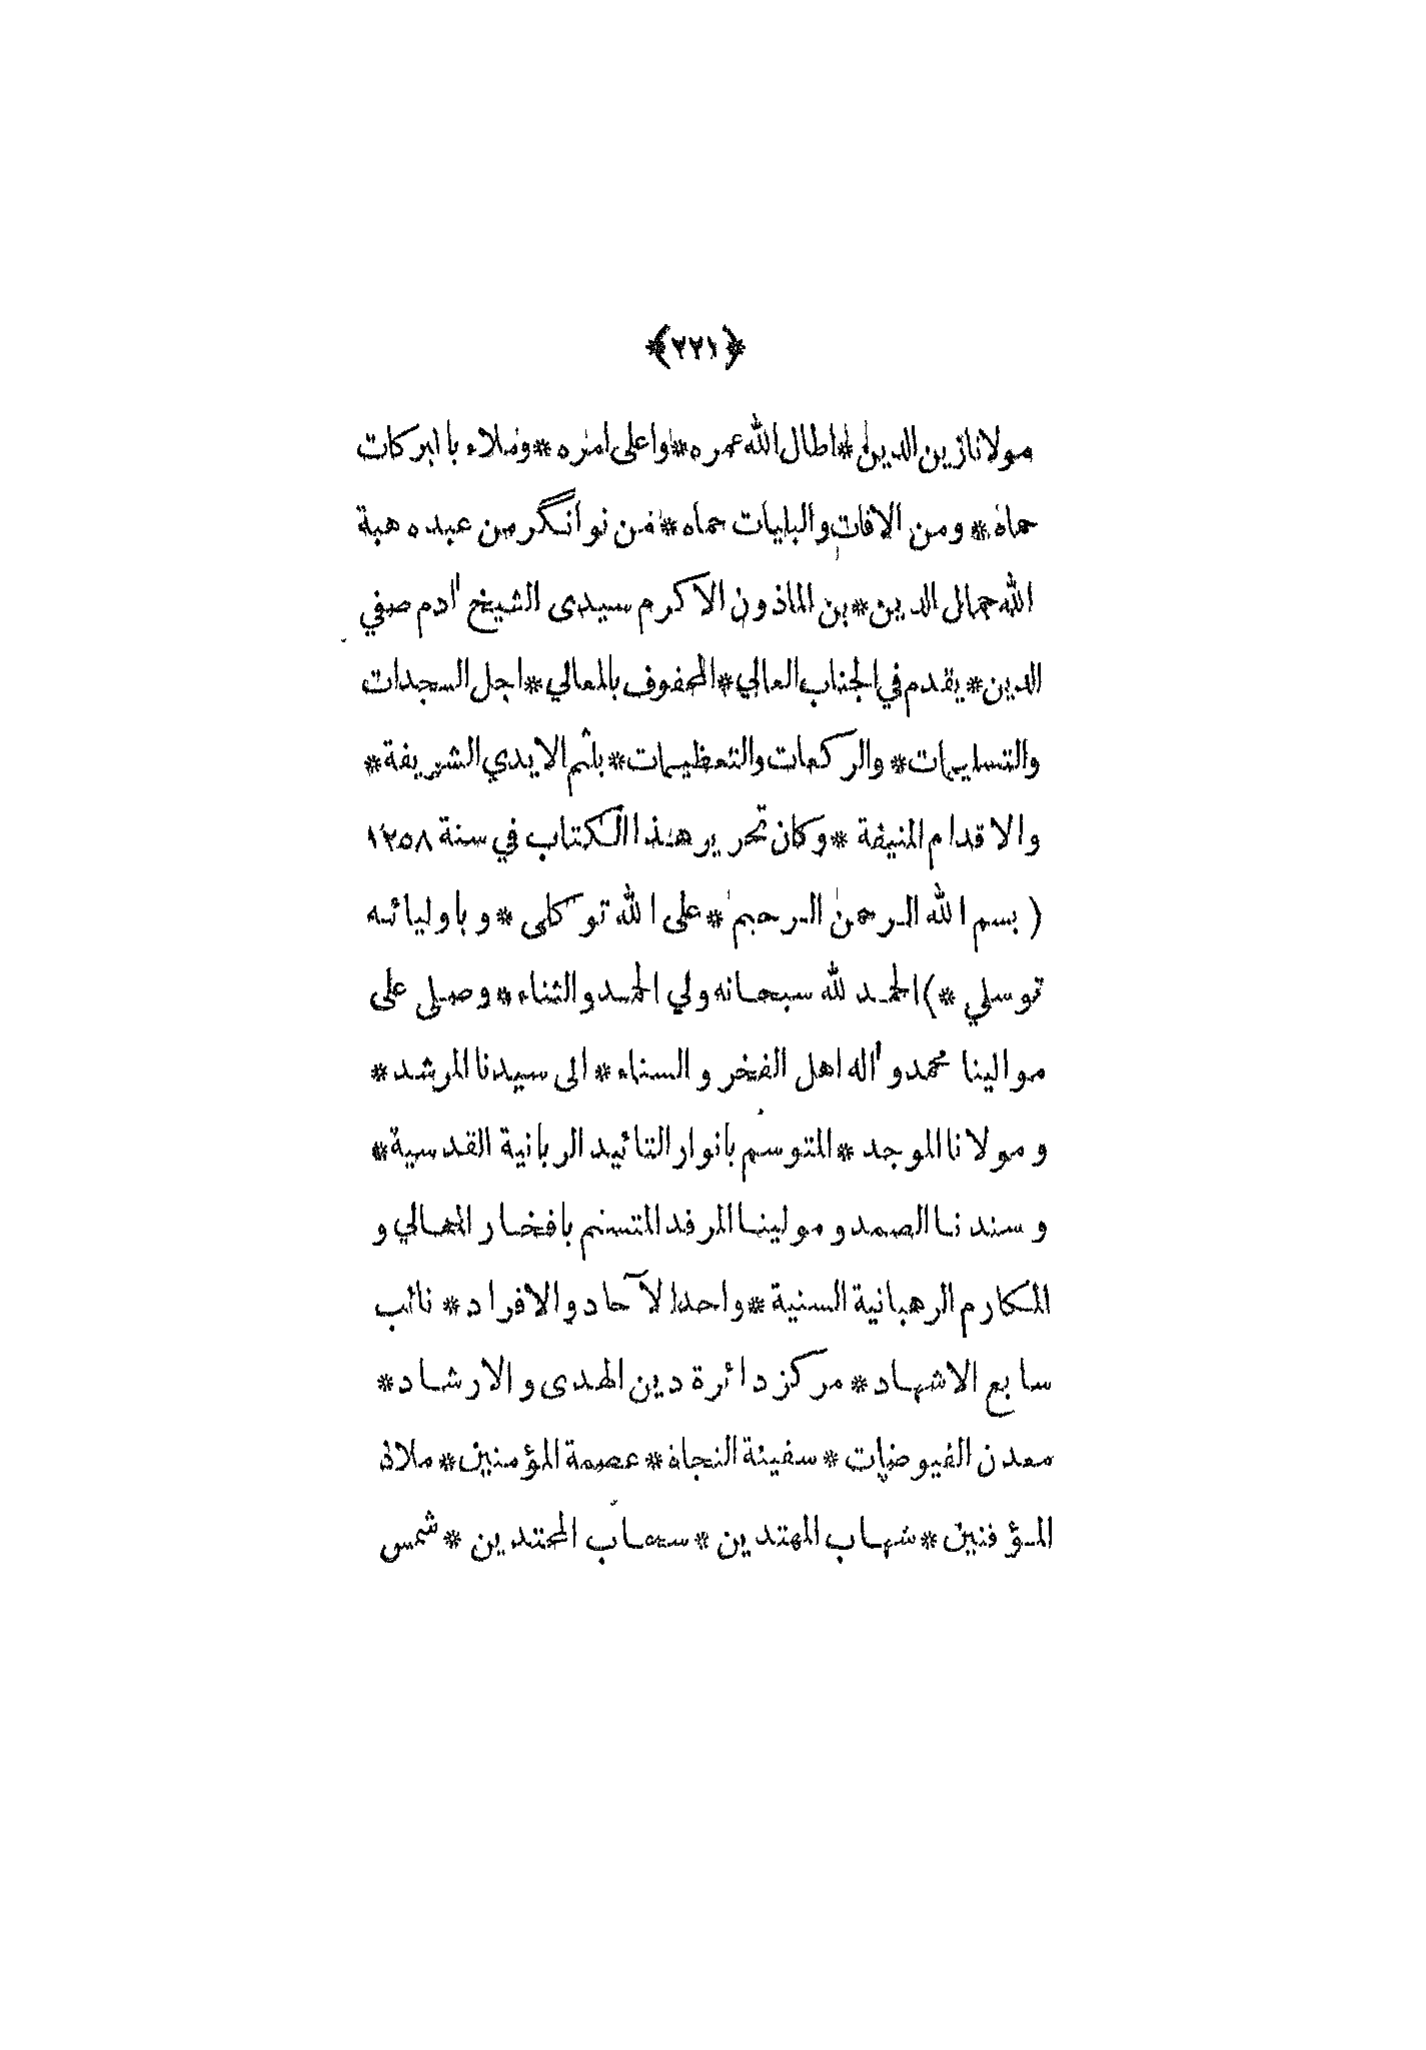 ﴿٢٢١﴾
مولانا زين الدين * اطال الله عمره * واعلى امره * وملاء باالبركات
حماه * ومن الافات والبليات حماه * فمن نوانگر من عبده هبة
الله جمال الدين * بن الماذون الاكرم سيدى الشيخ اٰدم صفي
الدين * يقدم في الجناب العالي * المحفوف بالمعالي * اجل السجدات
والتسليمات * والركعات والتعظيمات * بلثم الايدي الشريفة *
والاقدام المنيفة * وكان تحرير هذا الكتاب في سنة ١٢٥٨
( بسم الله الرحمن الرحيم * على الله توكلى * وباوليائه
توسلي * ) الحمد لله سبحانه ولي الحمد والثناء * وصلى على
موالينا محمد واٰله اهل الفخر والسناء * الى سيدنا المرشد *
ومولانا الموجد * المتوسم بانوار التائيد الربانية القدسية *
وسندنا الصمد ومولينا المرفد المتسنم بافخار المعالي و
المكارم الرهبانية السنية * واحد الآحاد والافراد * نائب
سابع الاشهاد * مركز دائرة دين الهدى والارشاد *
معدن الفيوضات * سفينة النجاة * عصمة المؤمنين * ملاذ
المؤفنين * شهاب المهتدين * سحاب المجتدين * شمس